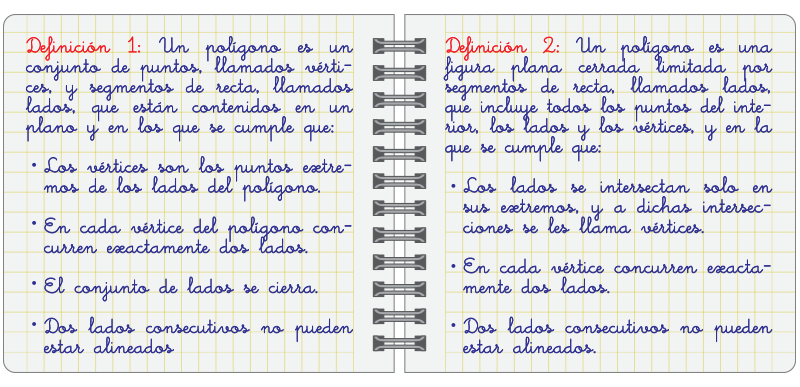 Definición 1: Un polígono es un
conjunto de puntos, llamados vérti-
ces, y segmentos de recta, llamados
lados, que están contenidos en un
plano y en los que se cumple que:
• Los vértices son los puntos extre-
mos de los lados del polígono.
• En cada vértice del polígono con-
curren exactamente dos lados.
• El conjunto de lados se cierra.
• Dos lados consecutivos no pueden
estar alineados
Definición 2: Un polígono es una
figura plana cerrada limitada por
segmentos de recta, llamados lados,
que incluye todos los puntos del inte-
rior, los lados y los vértices, y en la
que se cumple que:
• Los lados se intersectan solo en
sus extremos, y a dichas intersec-
ciones se les llama vértices.
• En cada vértice concurren exacta-
mente dos lados.
• Dos lados consecutivos no pueden
estar alineados.